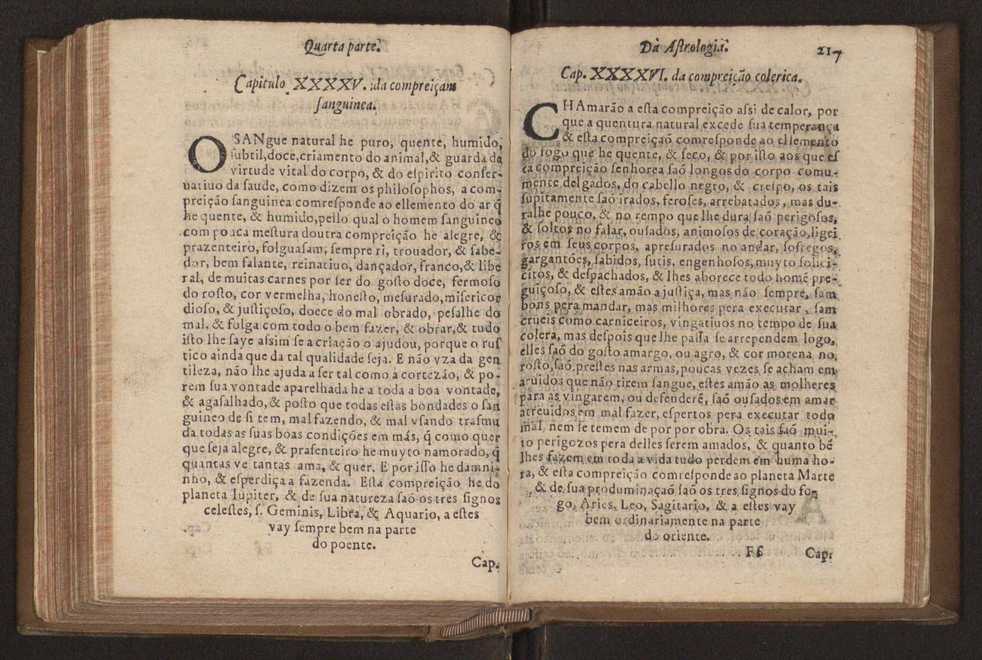 Quarta parte.
Capitulo XXXXV. da compreiçam
sanguinea.
O SANgue natural he puro, quente, humido,
subtil, doce, criamento do animal, & guarda da
virtude vital do corpo, & do espirito conser-
uatiuo da saude, como dizem os philosophos, a com-
preição sanguinea comresponde ao ellemento do ar q̃
he quente, & humido, pello qual o homem sanguineo
com pouca mestura doutra compreição he alegre, &
prazenteiro, folguasam, sempre ri, trouador, & sabe-
dor, bem falante, reinatiuo, dançador, franco, & libe
ral, de muitas carnes por ser do gosto doce, fermoso
do rosto, cor vermelha, honesto, mesurado, misericor
dioso, & justiçoso, doece do mal obrado, pesalhe do
mal, & fulga com todo o bem fazer, & obrar, & tudo
isto lhe saye assim se a criação o ajudou, porque o rus
tico ainda que da tal qualidade seja. E não vza da gen
tileza, não lhe ajuda a ser tal como a cortezão, & po-
rem sua vontade aparelhada he a toda a boa vontade,
& agasalhado, & posto que todas estas bondades o san
guineo de si tem, mal fazendo, & mal vsando trasmu
da todas as suas boas condições em más, q̃ como quer
que seja alegre, & prasenteiro he muyto namorado, q̃
quantas ve tantas ama, & quer. E por isso he damni-
nho, & esperdiça a fazenda. Esta compreição he do
planeta Iupiter, & de sua natureza saõ os tres signos
celestes, s. Geminis, Libra, & Aquario, a estes
vay sempre bem na parte
do poente.
Cap.
Dà Astrologia. 217
Cap. XXXXVI. da compreição colerica.
CHAmarão a esta compreição assi de calor, por
que a quentura natural excede sua temperança
& esta compreiçaõ comresponde ao ellemento
do fogo que he quente, & seco, & por isto aos que es
ta compreição senhorea saõ longos do corpo comu-
mente delgados, do cabello negro, & crespo, os tais
supitamente saõ irados, feroses, arrebatados, mas du-
ralhe pouco, & no tempo que lhe dura saõ perigosos,
& soltos no falar, ousados, animosos de coração, ligei
ros em seus corpos, apresurados no andar, sofregos,
gargantões, sabidos, sutis, engenhosos, muyto solici-
citos, & despachados, & lhes aborece todo homẽ pre-
guiçoso, & estes amão a justiça, mas não sempre, sam
bons pera mandar, mas milhores pera executar, sam
crueis como carniceiros, vingatiuos no tempo de sua
colera, mas despois que lhe passa se arrependem logo,
elles saõ do gosto amargo, ou agro, & cor morena no
rosto, saõ, prestes nas armas, poucas vezes se acham em
aruidos que não tirem sangue, estes amão as molheres
para as vingarem, ou defenderẽ, saõ ousados em amar
atreuidos em mal fazer, espertos pera executar todo
mal, nem se temem de por por obra. Os tais saõ mui-
to perigozos pera delles serem amados, & quanto bẽ
lhes fazem em toda a vida tudo perdem em huma ho-
ra, & esta compreição comresponde ao planeta Marte
& de sua produminaçaõ saõ os tres signos do fo-
go, Aries, Leo, Sagitario, & a estes vay
bem ordinariamente na parte
do oriente.
Ff Cap: